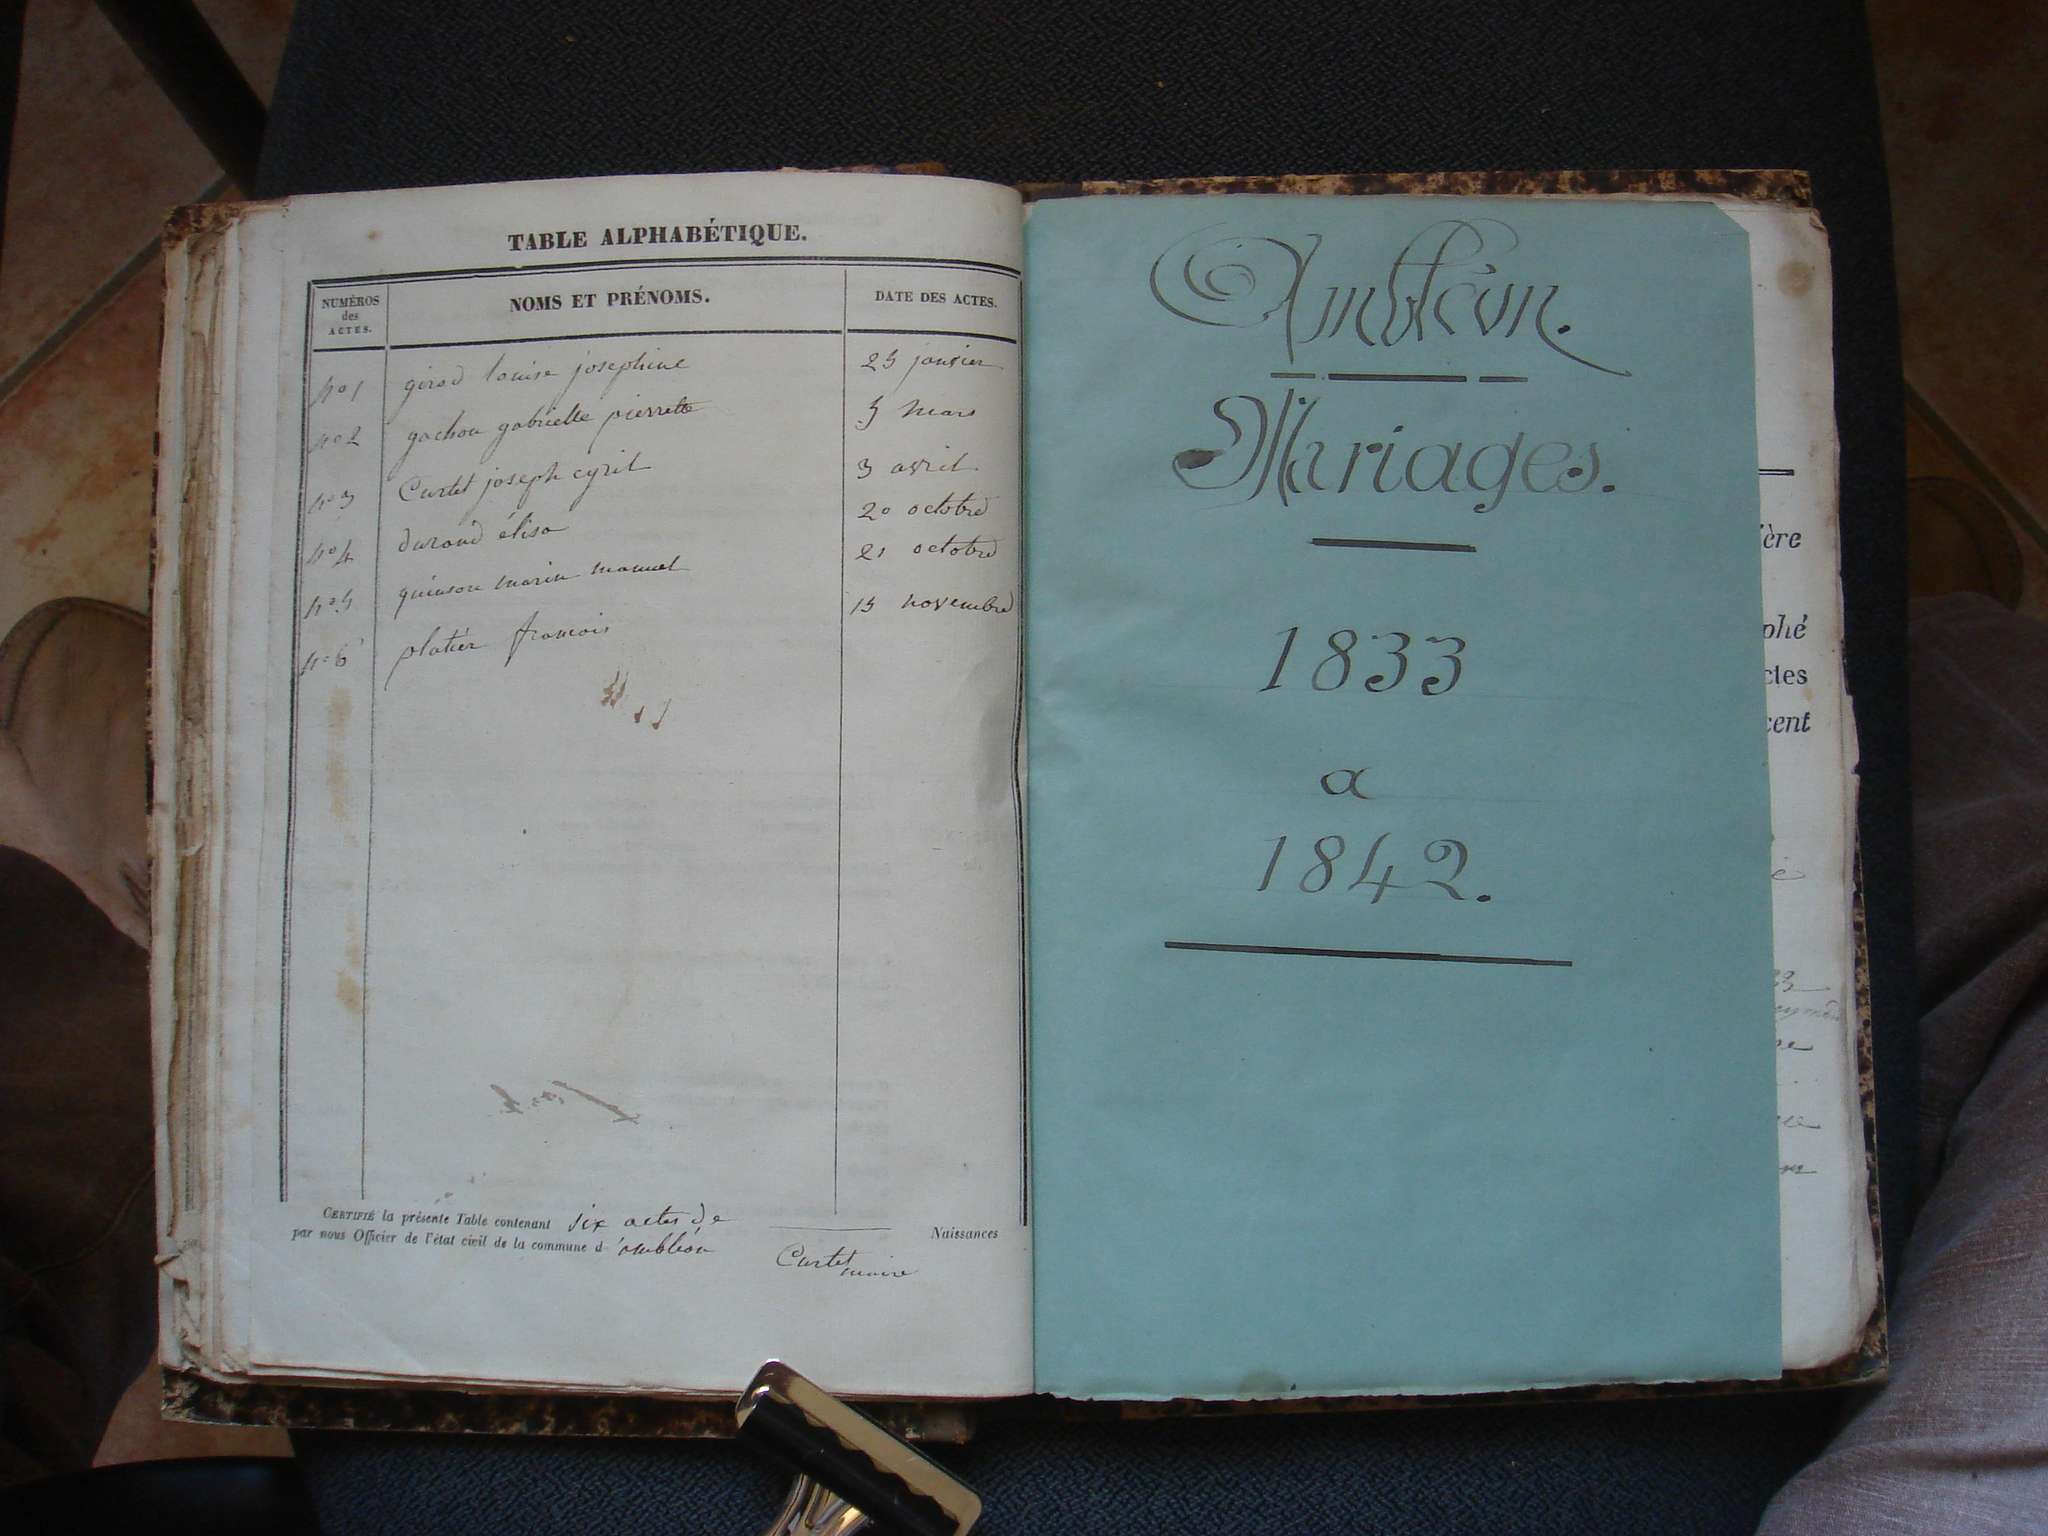 TABLE ALPHABÉTIQUE.
NUMÉROS
des
ACTES.
NOMS ET PRÉNOMS.
DATE DES ACTES.
no 1 girod louise josephine 25 janvier
no 2 gachou gabrielle pierrette 5 mars
no 3 Curtet joseph cyril 3 avril
no 4 durand élisa 20 octobre
no 5 quinson marin manuel 21 octobre
no 6 platier francois 15 novembre
CERTIFIÉ la présente Table contenant six actes de Naissances
par nous Officier de l'état civil de la commune d'ambléon
Curtet
maire
Ambléon.
Mariages.
1833
a
1842.
ère
phé
ctes
cent